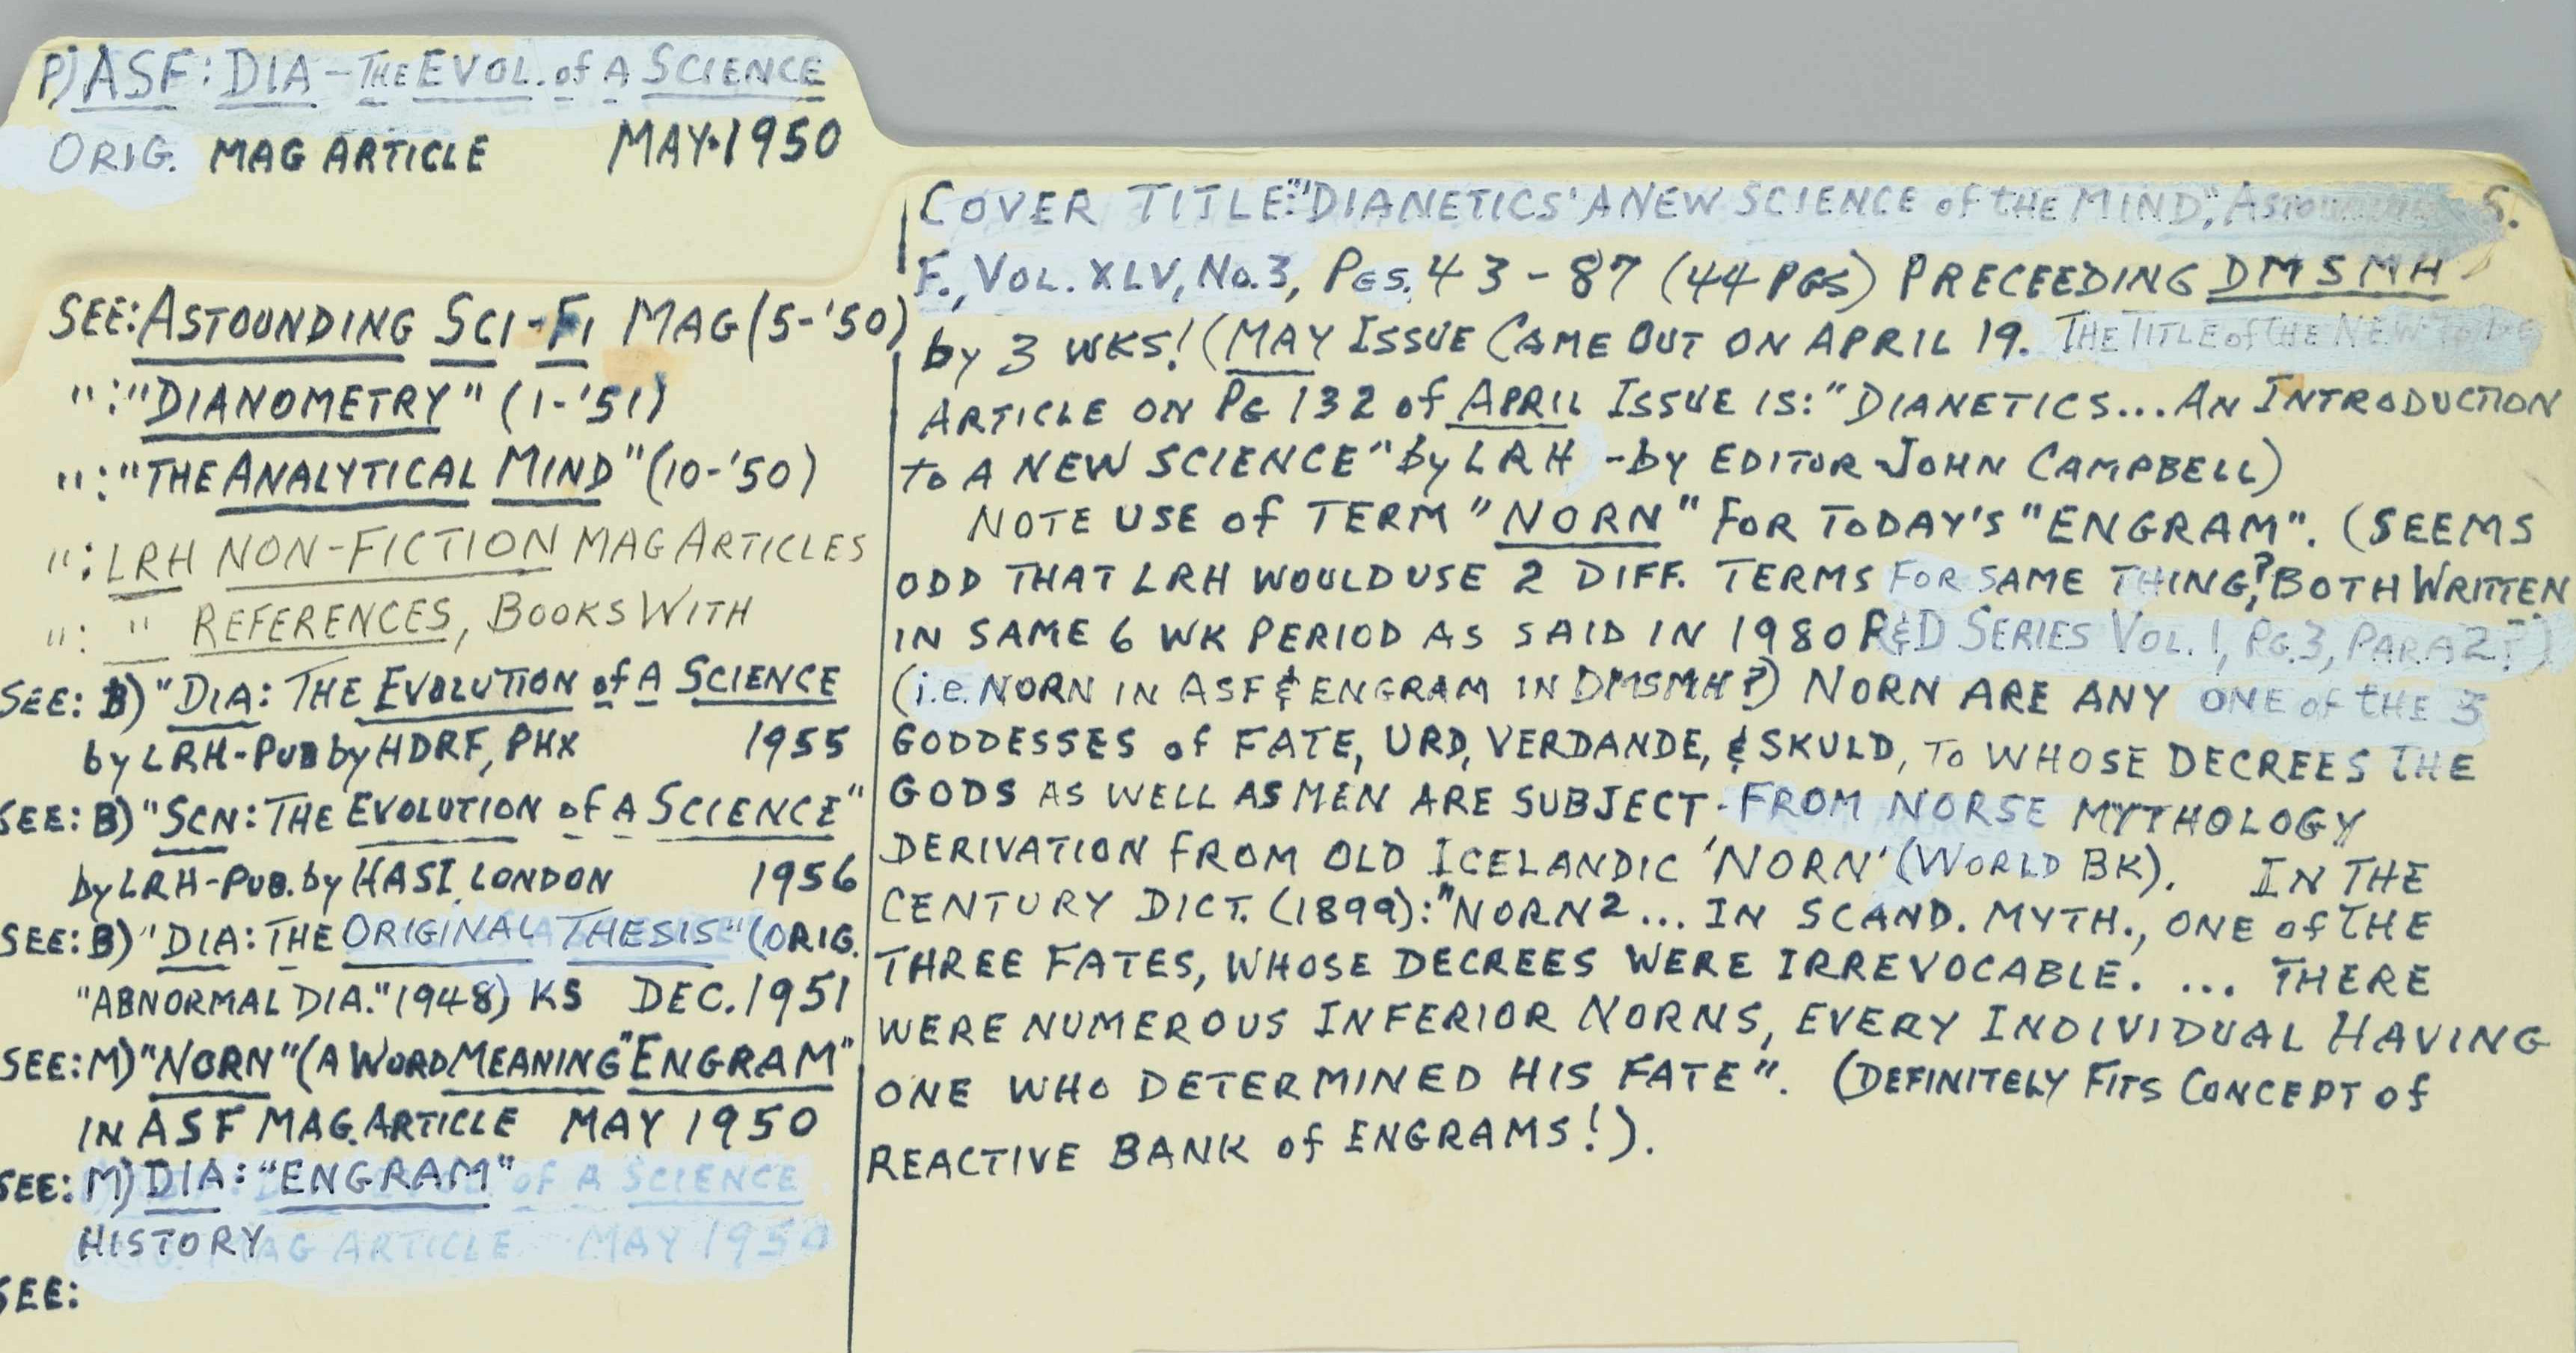 P) ASF: DIA - THE EVOL. of A SCIENCE
ORIG. MAG ARTICLE MAY. 1950
SEE: ASTOUNDING SCI-FI MAG (5-'50)
" : "DIANOMETRY" (1-'51)
" : "THE ANALYTICAL MIND" (10-'50)
" : LRH NON-FICTION MAG ARTICLES
" : " REFERENCES, BOOKS WITH
SEE: B) "DIA: THE EVOLUTION of A SCIENCE
by LRH - PUB by HDRF, PHX 1955
SEE: B) "SCN: THE EVOLUTION of A SCIENCE"
by LRH - PUB. by HASI, LONDON 1956
SEE: B) "DIA: THE ORIGINAL THESIS" (ORIG.
"ABNORMAL DIA." 1948) KS DEC. 1951
SEE: M) "NORN" (A WORD MEANING "ENGRAM"
IN ASF MAG. ARTICLE MAY 1950
SEE: M) DIA: "ENGRAM" OF A SCIENCE
HISTORY MAG ARTICLE MAY 1950
SEE:
COVER TITLE: "'DIANETICS' A NEW SCIENCE of tHE MIND", S.
F., VOL. XLV, No. 3, PGS. 43 - 87 (44 PGS) PRECEEDING DMSMH
by 3 WKS! (MAY ISSUE CAME OUT ON APRIL 19. THE TITLE of THE NEW TO BE
ARTICLE ON PG 132 of APRIL ISSUE IS: "DIANETICS... AN INTRODUCTION
to A NEW SCIENCE" by LRH - by EDITOR JOHN CAMPBELL)
NOTE USE of TERM "NORN" FOR TODAY'S "ENGRAM". (SEEMS
ODD THAT LRH WOULD USE 2 DIFF. TERMS FOR SAME THING?, BOTH WRITTEN
IN SAME 6 WK PERIOD AS SAID IN 1980 R&D SERIES VOL. 1, PG. 3, PARA 2?)
(i.e. NORN IN ASF & ENGRAM IN DMSMH?) NORN ARE ANY ONE of tHE 3
GODDESSES of FATE, URD, VERDANDE, & SKULD, TO WHOSE DECREES THE
GODS AS WELL AS MEN ARE SUBJECT - FROM NORSE MYTHOLOGY
DERIVATION FROM OLD ICELANDIC 'NORN' (WORLD BK). IN THE
CENTURY DICT. (1899): "NORN2... IN SCAND. MYTH., ONE of THE
THREE FATES, WHOSE DECREES WERE IRREVOCABLE. ... THERE
WERE NUMEROUS INFERIOR NORNS, EVERY INDIVIDUAL HAVING
ONE WHO DETERMINED HIS FATE". (DEFINITELY FITS CONCEPT of
REACTIVE BANK of ENGRAMS!).